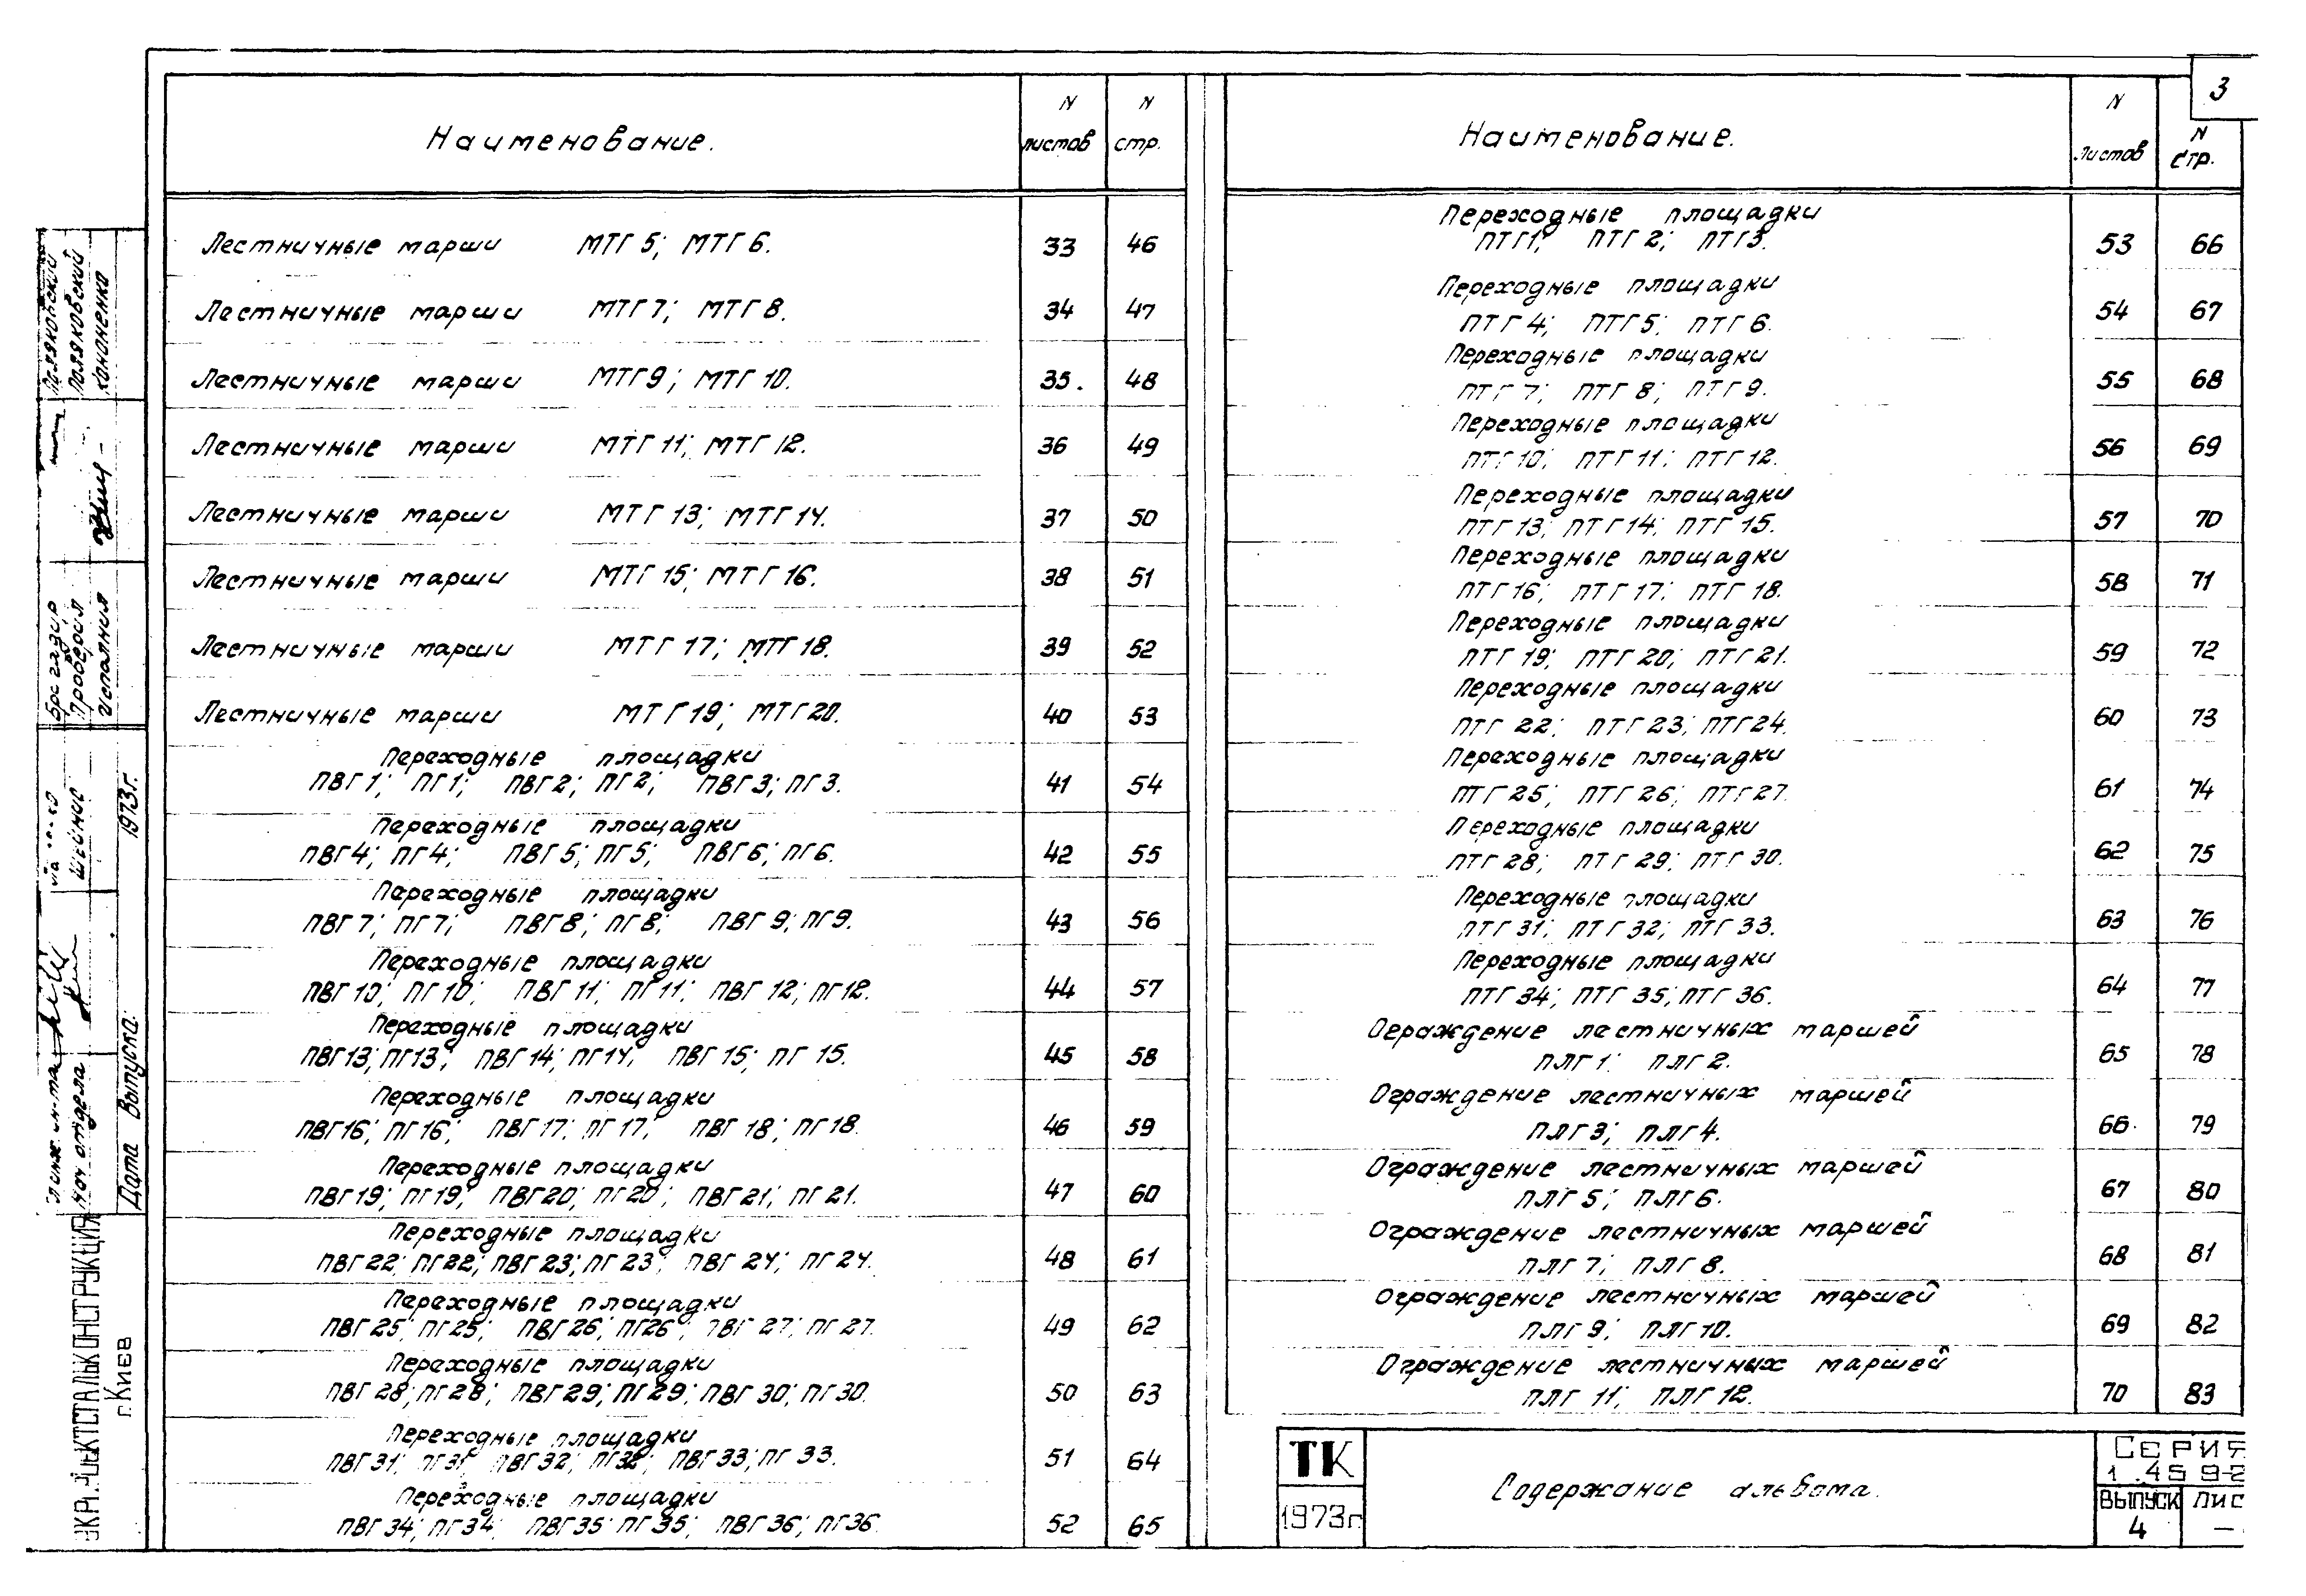 3
Наименование.
N листов
N стр.
Лестничные марши МТГ 5; МТГ 6. 33 46
Лестничные марши МТГ 7; МТГ 8. 34 47
Лестничные марши МТГ 9; МТГ 10. 35. 48
Лестничные марши МТГ 11; МТГ 12. 36 49
Лестничные марши МТГ 13; МТГ 14. 37 50
Лестничные марши МТГ 15; МТГ 16. 38 51
Лестничные марши МТГ 17; МТГ 18. 39 52
Лестничные марши МТГ 19; МТГ 20. 40 53
Переходные площадки
ПВГ 1; ПГ 1; ПВГ 2; ПГ 2; ПВГ 3; ПГ 3. 41 54
Переходные площадки
ПВГ 4; ПГ 4; ПВГ 5; ПГ 5; ПВГ 6; ПГ 6. 42 55
Переходные площадки
ПВГ 7; ПГ 7; ПВГ 8; ПГ 8; ПВГ 9; ПГ 9. 43 56
Переходные площадки
ПВГ 10; ПГ 10; ПВГ 11; ПГ 11; ПВГ 12; ПГ 12. 44 57
Переходные площадки
ПВГ 13; ПГ 13; ПВГ 14; ПГ 14; ПВГ 15; ПГ 15. 45 58
Переходные площадки
ПВГ 16; ПГ 16; ПВГ 17; ПГ 17; ПВГ 18; ПГ 18. 46 59
Переходные площадки
ПВГ 19; ПГ 19; ПВГ 20; ПГ 20; ПВГ 21; ПГ 21. 47 60
Переходные площадки
ПВГ 22; ПГ 22; ПВГ 23; ПГ 23; ПВГ 24; ПГ 24. 48 61
Переходные площадки
ПВГ 25; ПГ 25; ПВГ 26; ПГ 26; ПВГ 27; ПГ 27. 49 62
Переходные площадки
ПВГ 28; ПГ 28; ПВГ 29; ПГ 29; ПВГ 30; ПГ 30. 50 63
Переходные площадки
ПВГ 31; ПГ 31; ПВГ 32; ПГ 32; ПВГ 33; ПГ 33. 51 64
Переходные площадки
ПВГ 34; ПГ 34; ПВГ 35; ПГ 35; ПВГ 36; ПГ 36. 52 65
Наименование.
N листов
N стр.
Переходные площадки
ПТГ 1; ПТГ 2; ПТГ 3. 53 66
Переходные площадки
ПТГ 4; ПТГ 5; ПТГ 6. 54 67
Переходные площадки
ПТГ 7; ПТГ 8; ПТГ 9. 55 68
Переходные площадки
ПТГ 10; ПТГ 11; ПТГ 12. 56 69
Переходные площадки
ПТГ 13; ПТГ 14; ПТГ 15. 57 70
Переходные площадки
ПТГ 16; ПТГ 17; ПТГ 18. 58 71
Переходные площадки
ПТГ 19; ПТГ 20; ПТГ 21. 59 72
Переходные площадки
ПТГ 22; ПТГ 23; ПТГ 24. 60 73
Переходные площадки
ПТГ 25; ПТГ 26; ПТГ 27. 61 74
Переходные площадки
ПТГ 28; ПТГ 29; ПТГ 30. 62 75
Переходные площадки
ПТГ 31; ПТГ 32; ПТГ 33. 63 76
Переходные площадки
ПТГ 34; ПТГ 35; ПТГ 36. 64 77
Ограждение лестничных маршей
ПЛГ 1; ПЛГ 2. 65 78
Ограждение лестничных маршей
ПЛГ 3; ПЛГ 4. 66. 79
Ограждение лестничных маршей
ПЛГ 5; ПЛГ 6. 67 80
Ограждение лестничных маршей
ПЛГ 7; ПЛГ 8. 68 81
Ограждение лестничных маршей
ПЛГ 9; ПЛГ 10. 69 82
Ограждение лестничных маршей
ПЛГ 11; ПЛГ 12. 70 83
ТК
1973г
Содержание альбома.
СЕРИЯ
1.459-2
ВЫПУСК
4
ЛИС
–
Поляковский
Кононенко
Проверил
Исполнил
1973г.
Шейнис
нач отдела
Дата Выпуска:
г. Киев